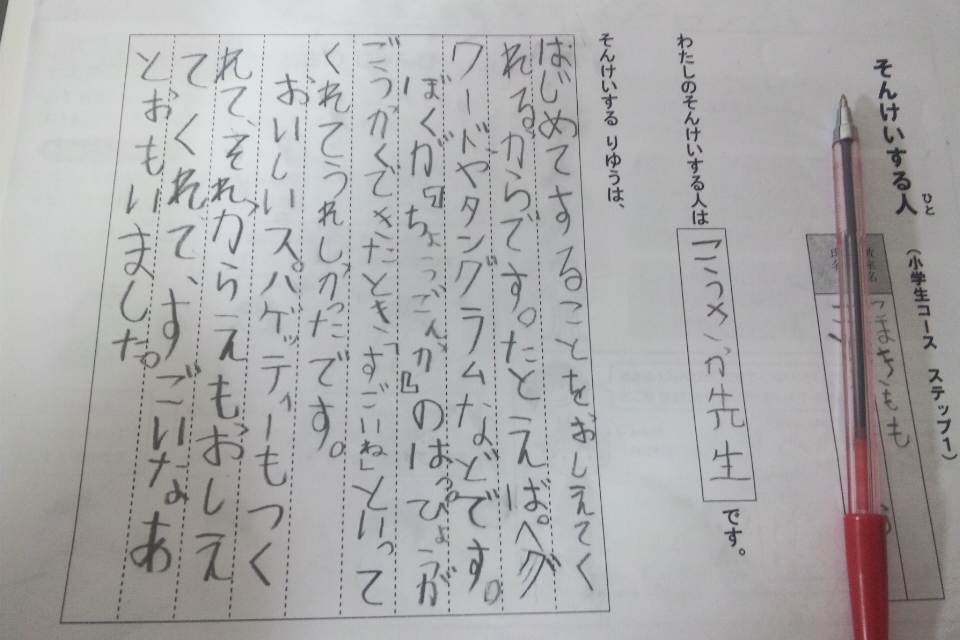 そんけいする人
ひと
（小学生コース ステップ1）
わたしのそんけいする人は こうさか先生 です。
そんけいする りゆうは、
はじめてすることをおしえてく
れるからです。たとえば。ペグ
ワードやタングラムなどです。
ぼくが『ちょっごんが』のはっぴょうが
ごうかくできたとき「すごいね」といって
くれてうれしかったです。
おいしいスパゲッティーもつく
れて、それからえもおしえ
てくれて、すごいなあ
とおもいました。